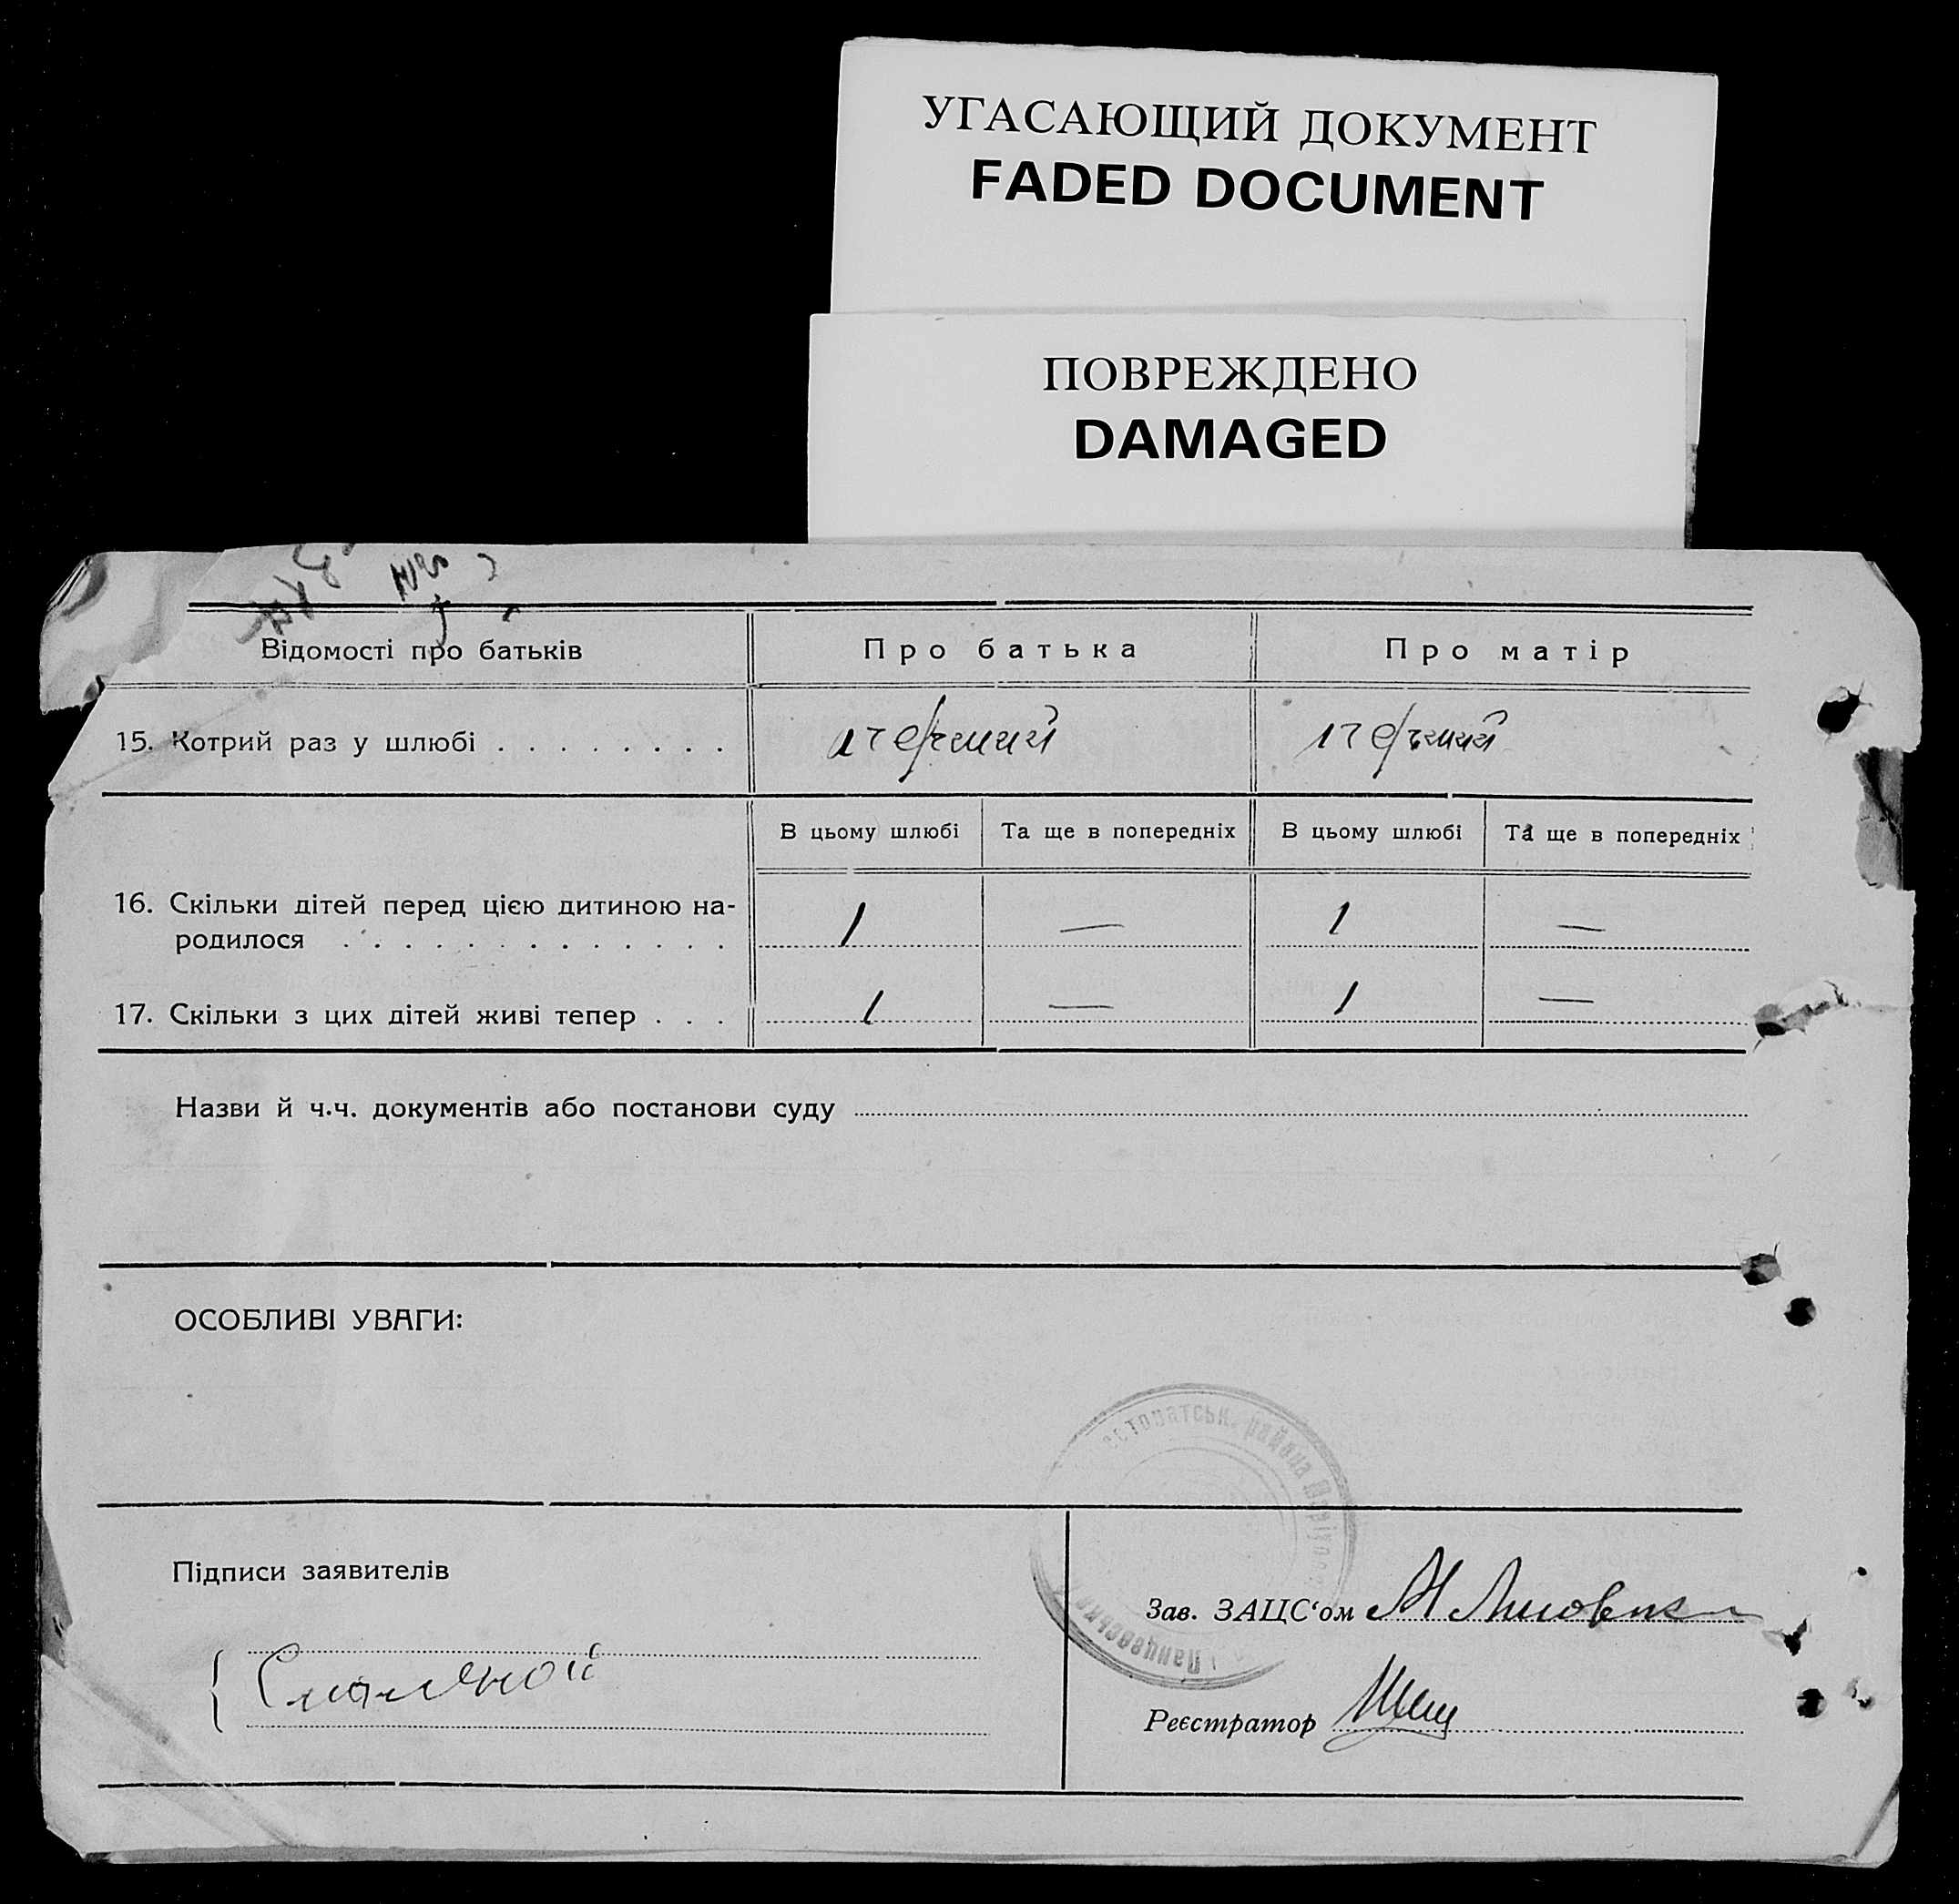 УГАСАЮЩИЙ ДОКУМЕНТ
FADED DOCUMENT
ПОВРЕЖДЕНО
DAMAGED
Відомості про батьків
Про батька
Про матір
15. Котрий раз у шлюбі . . . . . . . .
перший
перший
В цьому шлюбі
Та ще в попередніх
В цьому шлюбі
Та ще в попередніх
16. Скільки дітей перед цією дитиною на-
родилося . . . . . . . . . . . . .
1
—
1
—
17. Скільки з цих дітей живі тепер . . .
1
—
1
—
Назви й ч.ч. документів або постанови суду
ОСОБЛИВІ УВАГИ:
Підписи заявителів
района
Зав. ЗАЦС‘ом
Реєстратор